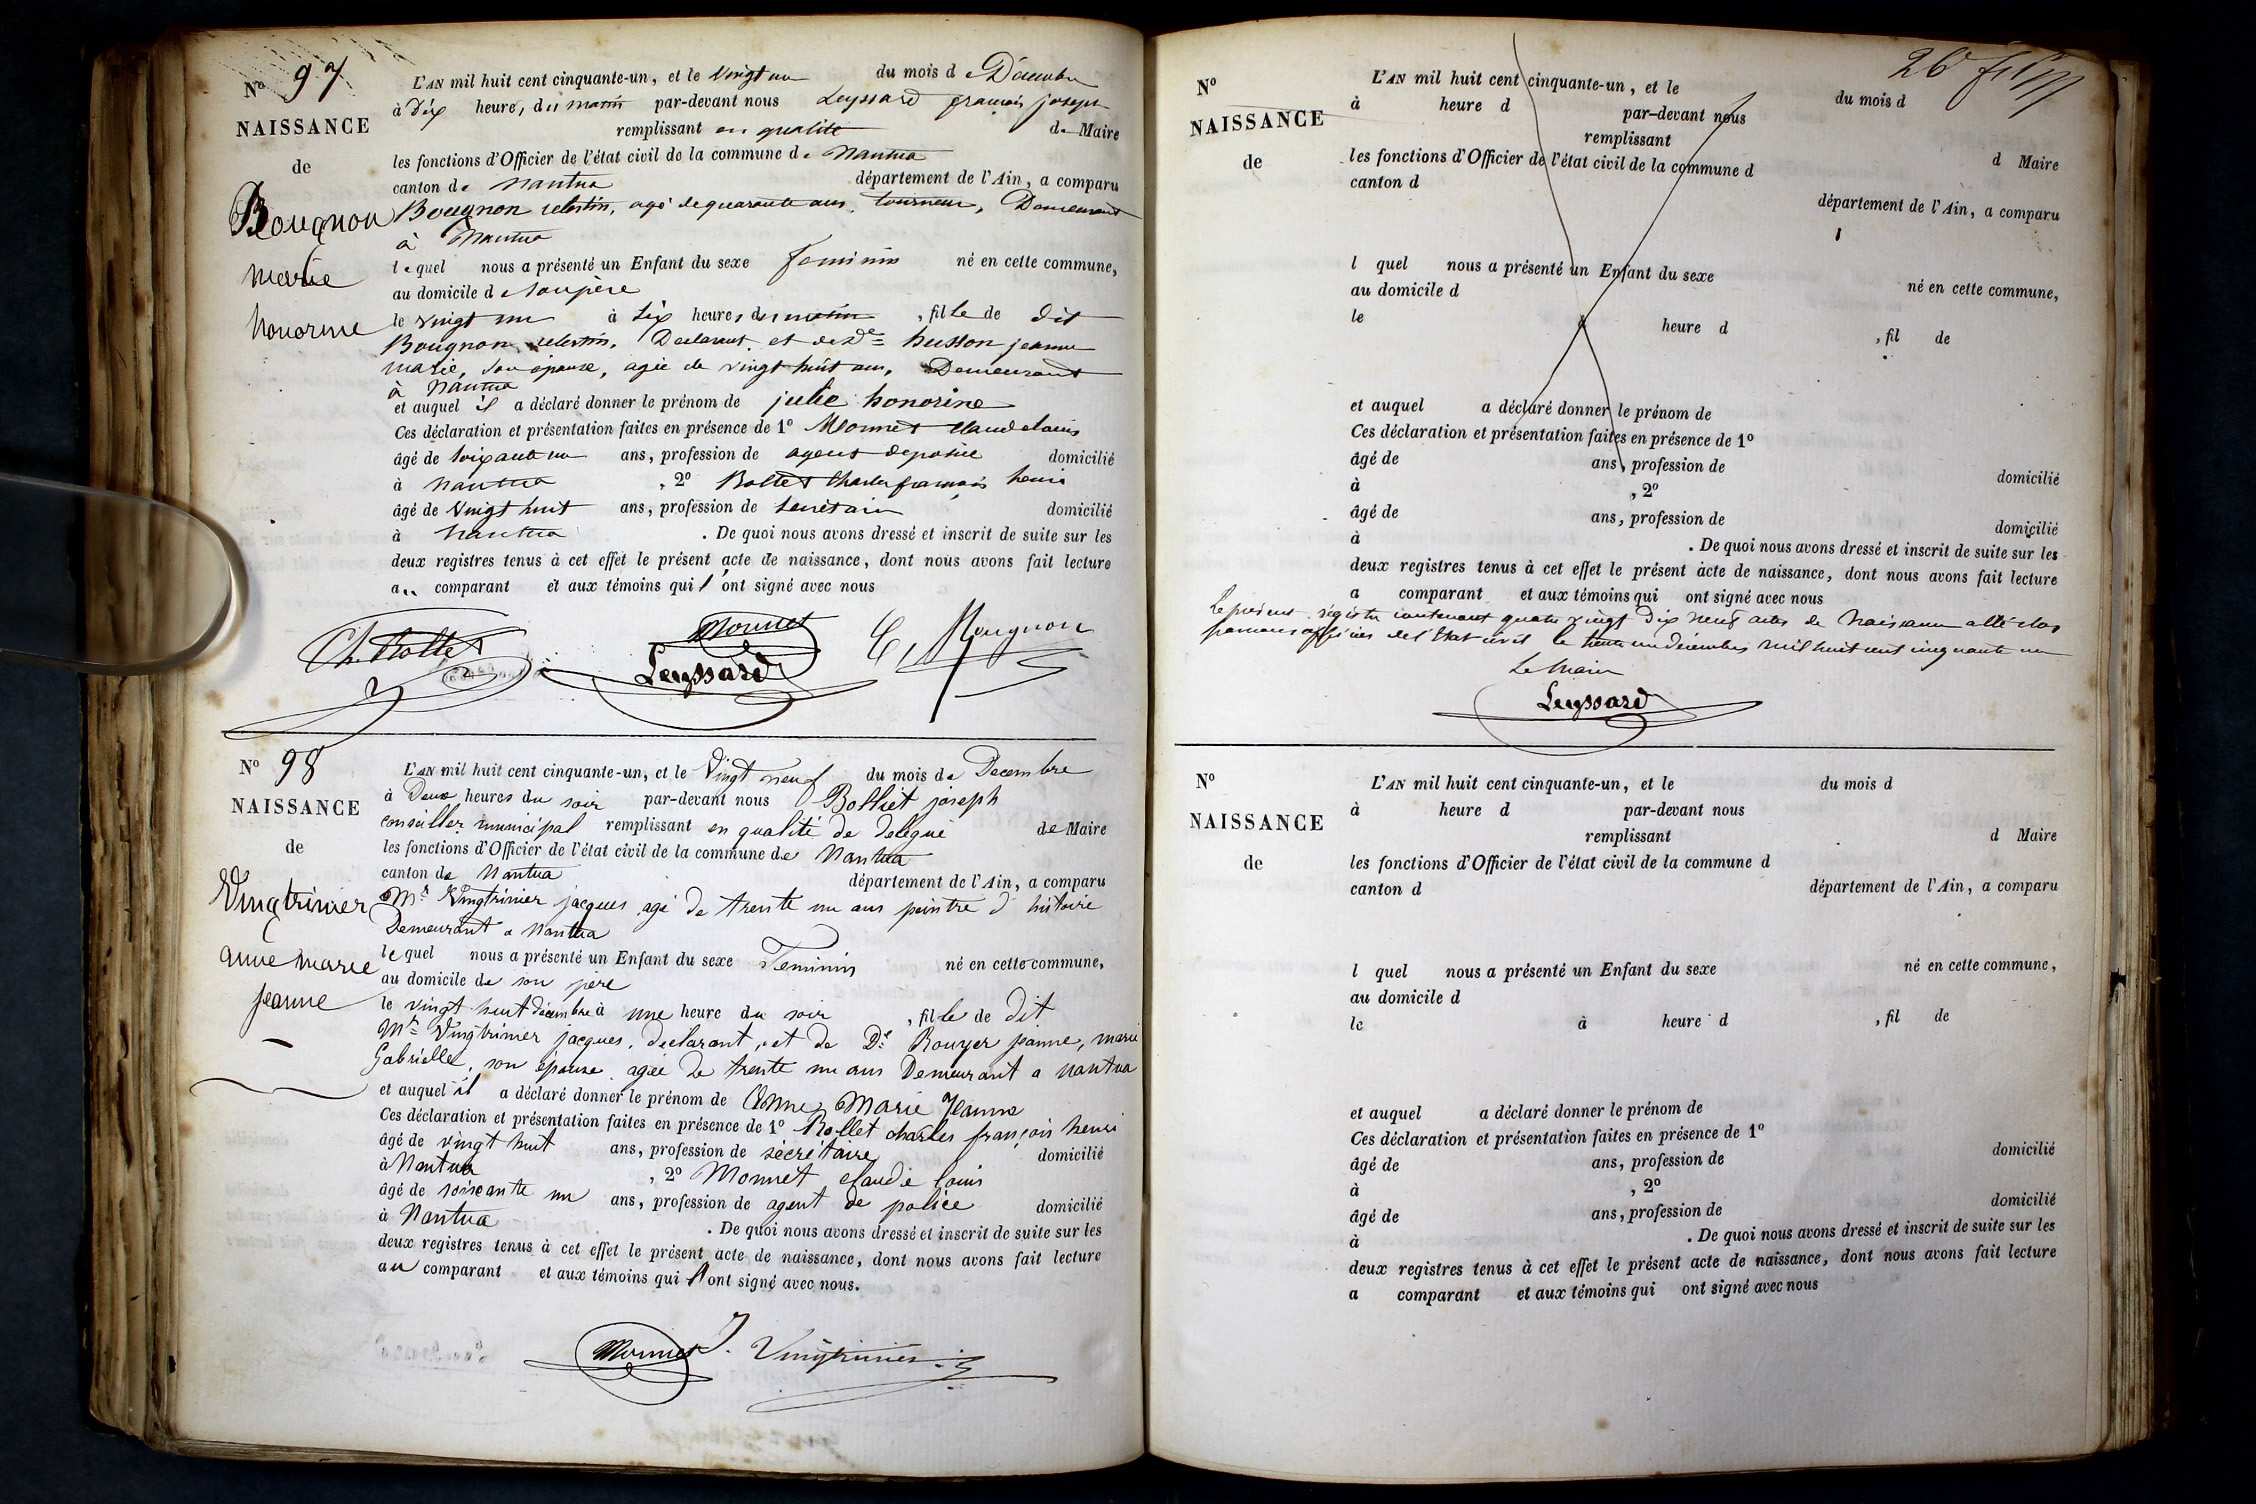 N° 97
NAISSANCE
de
Bougnon
marie
honorine
L'AN mil huit cent cinquante-un, et le Vingt un du mois d Décembre
à Dix heure, du matin par-devant nous Leyssard françois joseph
remplissant en qualité de Maire
les fonctions d'Officier de l'état civil de la commune de Nantua
canton de Nantua département de l'Ain, a comparu
Bougnon celestin, agé de quarante ans, tourneur, Demeurant
à Nantua
lequel nous a présenté un Enfant du sexe feminin né en cette commune,
au domicile de son père
le vingt un à six heures du matin , fille de dit
Bougnon celestin, Declarant et de De husson jeanne
marie, son épouse, agée de vingt huit ans, Demeurant
à Nantua
et auquel il a déclaré donner le prénom de julie honorine
Ces déclaration et présentation faites en présence de 1° Monnet Claude Louis
âgé de soixante un ans, profession de agent de police domicilié
à Nantua , 2° Bollet Charles françois henri
âgé de Vingt huit ans, profession de secrétaire domicilié
à Nantua . De quoi nous avons dressé et inscrit de suite sur les
deux registres tenus à cet effet le présent acte de naissance, dont nous avons fait lecture
au comparant et aux témoins qui l'ont signé avec nous
Ch. Bollet Monnet C, Bougnon
Leyssard
N° 98
NAISSANCE
de
Vingtrinier
anne marie
jeanne
L'AN mil huit cent cinquante-un, et le Vingt neuf du mois de Decembre
à Deux heures du soir par-devant nous Bolliet joseph
conseiller municipal remplissant en qualité de délégué de Maire
les fonctions d'Officier de l'état civil de la commune de Nantua
canton de Nantua département de l'Ain, a comparu
Mr Vingtrinier jacques agé de trente un ans peintre d'histoire
Demeurant a Nantua
lequel nous a présenté un Enfant du sexe Feminin né en cette commune,
au domicile de son père
le vingt huit décembre à une heure du soir , fille de dit
Mr Vingtrinier jacques, declarant, et de De Rouyer jeanne, marie
Gabrielle, son épouse agée de trente un ans Demeurant a Nantua
et auquel il a déclaré donner le prénom de Anne Marie Jeanne
Ces déclaration et présentation faites en présence de 1° Bollet charles françois henri
âgé de vingt huit ans, profession de sécrétaire domicilié
à Nantua , 2° Monnet claude louis
âgé de soixante un ans, profession de agent de police domicilié
à Nantua . De quoi nous avons dressé et inscrit de suite sur les
deux registres tenus à cet effet le présent acte de naissance, dont nous avons fait lecture
au comparant et aux témoins qui l'ont signé avec nous.
Monnet J. Vingtrinier
N°
NAISSANCE
de
L'AN mil huit cent cinquante-un, et le du mois d
à heure d par-devant nous
remplissant d Maire
les fonctions d'Officier de l'état civil de la commune d
canton d département de l'Ain, a comparu
l quel nous a présenté un Enfant du sexe né en cette commune,
au domicile d
le à heure d , fil de
et auquel a déclaré donner le prénom de
Ces déclaration et présentation faites en présence de 1°
âgé de ans, profession de domicilié
à , 2°
âgé de ans, profession de domicilié
à . De quoi nous avons dressé et inscrit de suite sur les
deux registres tenus à cet effet le présent acte de naissance, dont nous avons fait lecture
a comparant et aux témoins qui ont signé avec nous
Le présent régistre contenant quatre vingt Dix neuf actes de Naissance a été clos
par nous officier de l'état civil le trente un décembre mil huit cent cinquante un
Le Maire
Leyssard
N°
NAISSANCE
de
L'AN mil huit cent cinquante-un, et le du mois d
à heure d par-devant nous
remplissant d Maire
les fonctions d'Officier de l'état civil de la commune d
canton d département de l'Ain, a comparu
l quel nous a présenté un Enfant du sexe né en cette commune,
au domicile d
le à heure d , fil de
et auquel a déclaré donner le prénom de
Ces déclaration et présentation faites en présence de 1°
âgé de ans, profession de domicilié
à , 2°
âgé de ans, profession de domicilié
à . De quoi nous avons dressé et inscrit de suite sur les
deux registres tenus à cet effet le présent acte de naissance, dont nous avons fait lecture
a comparant et aux témoins qui ont signé avec nous